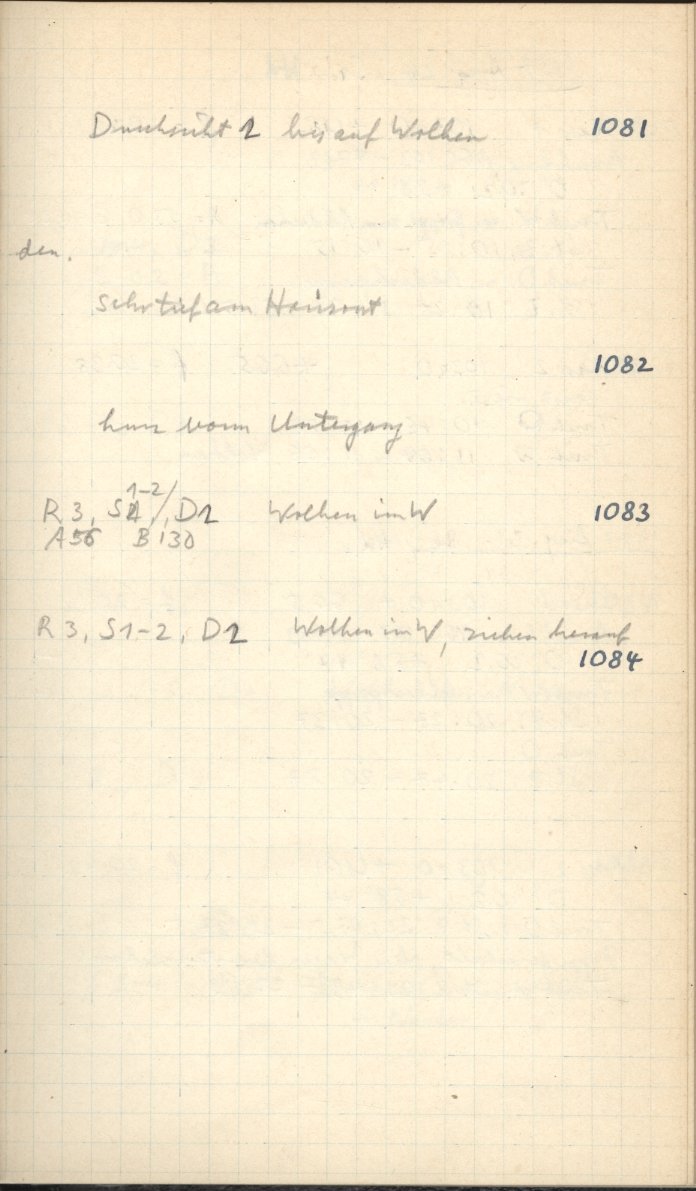 Durchsicht 1 bis auf Wolken 1081
den.
sehr tief am Horizont
1082
kurz vorm Untergang
1-2/
R 3, S , D1 Wolken im W 1083
A 56 B 130
R 3, S1-2, D1 Wolken im W, ziehen herauf
1084